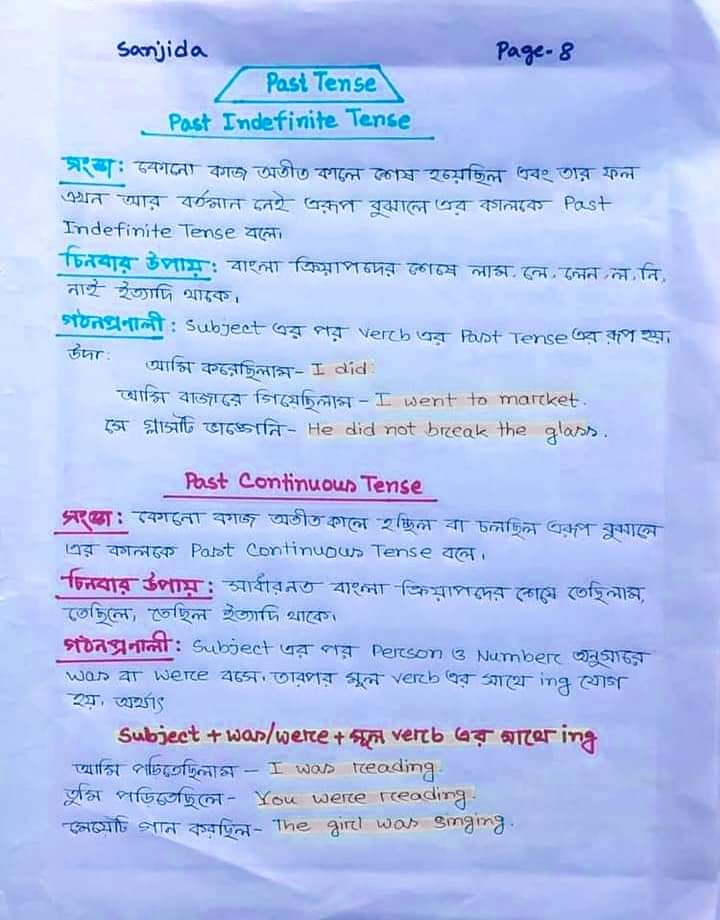 Sanjida Page-8
Past Tense
Past Indefinite Tense
সংজ্ঞা: কোনো কাজ অতীত কালে শেষ হয়েছিল এবং তার ফল
এখন আর বর্তমান নেই এরূপ বুঝালে এর কালকে Past
Indefinite Tense বলে।
চিনবার উপায়: বাংলা ক্রিয়াপদের শেষে লাম, লে, লেন, ল, নি,
নাই ইত্যাদি থাকে।
গঠনপ্রনালী: Subject এর পর verb এর Past Tense এর রূপ হয়।
উদা:
আমি করেছিলাম- I did
আমি বাজারে গিয়েছিলাম - I went to market.
সে গ্লাসটি ভাঙ্গেনি - He did not break the glass.
Past Continuous Tense
সংজ্ঞা: কোনো কাজ অতীত কালে হচ্ছিল বা চলছিল এরূপ বুঝালে
এর কালকে Past Continuous Tense বলে।
চিনবার উপায়: সাধারনত বাংলা ক্রিয়াপদের শেষে তেছিলাম,
তেছিলে, তেছিল ইত্যাদি থাকে।
গঠনপ্রনালী: Subject এর পর Person ও Number অনুসারে
was বা were বসে, তারপর মূল verb এর সাথে ing যোগ
হয়, অর্থাৎ
Subject + was/were + মূল verb এর সাথে ing
আমি পড়িতেছিলাম - I was reading.
তুমি পড়িতেছিলে - You were reading.
মেয়েটি গান করছিল - The girl was singing.